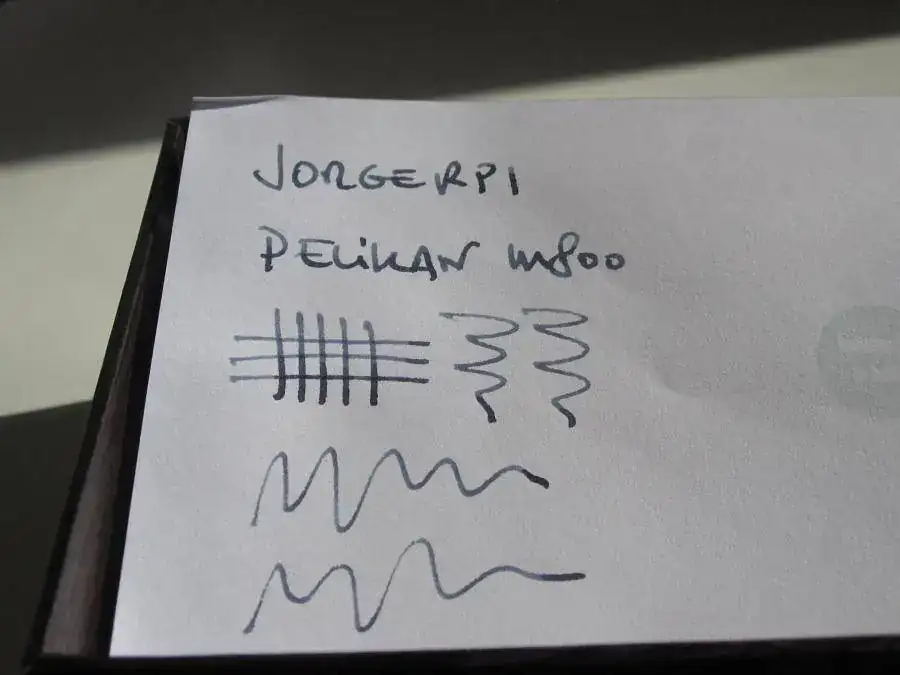 JORGERPI
PELiKAN M800